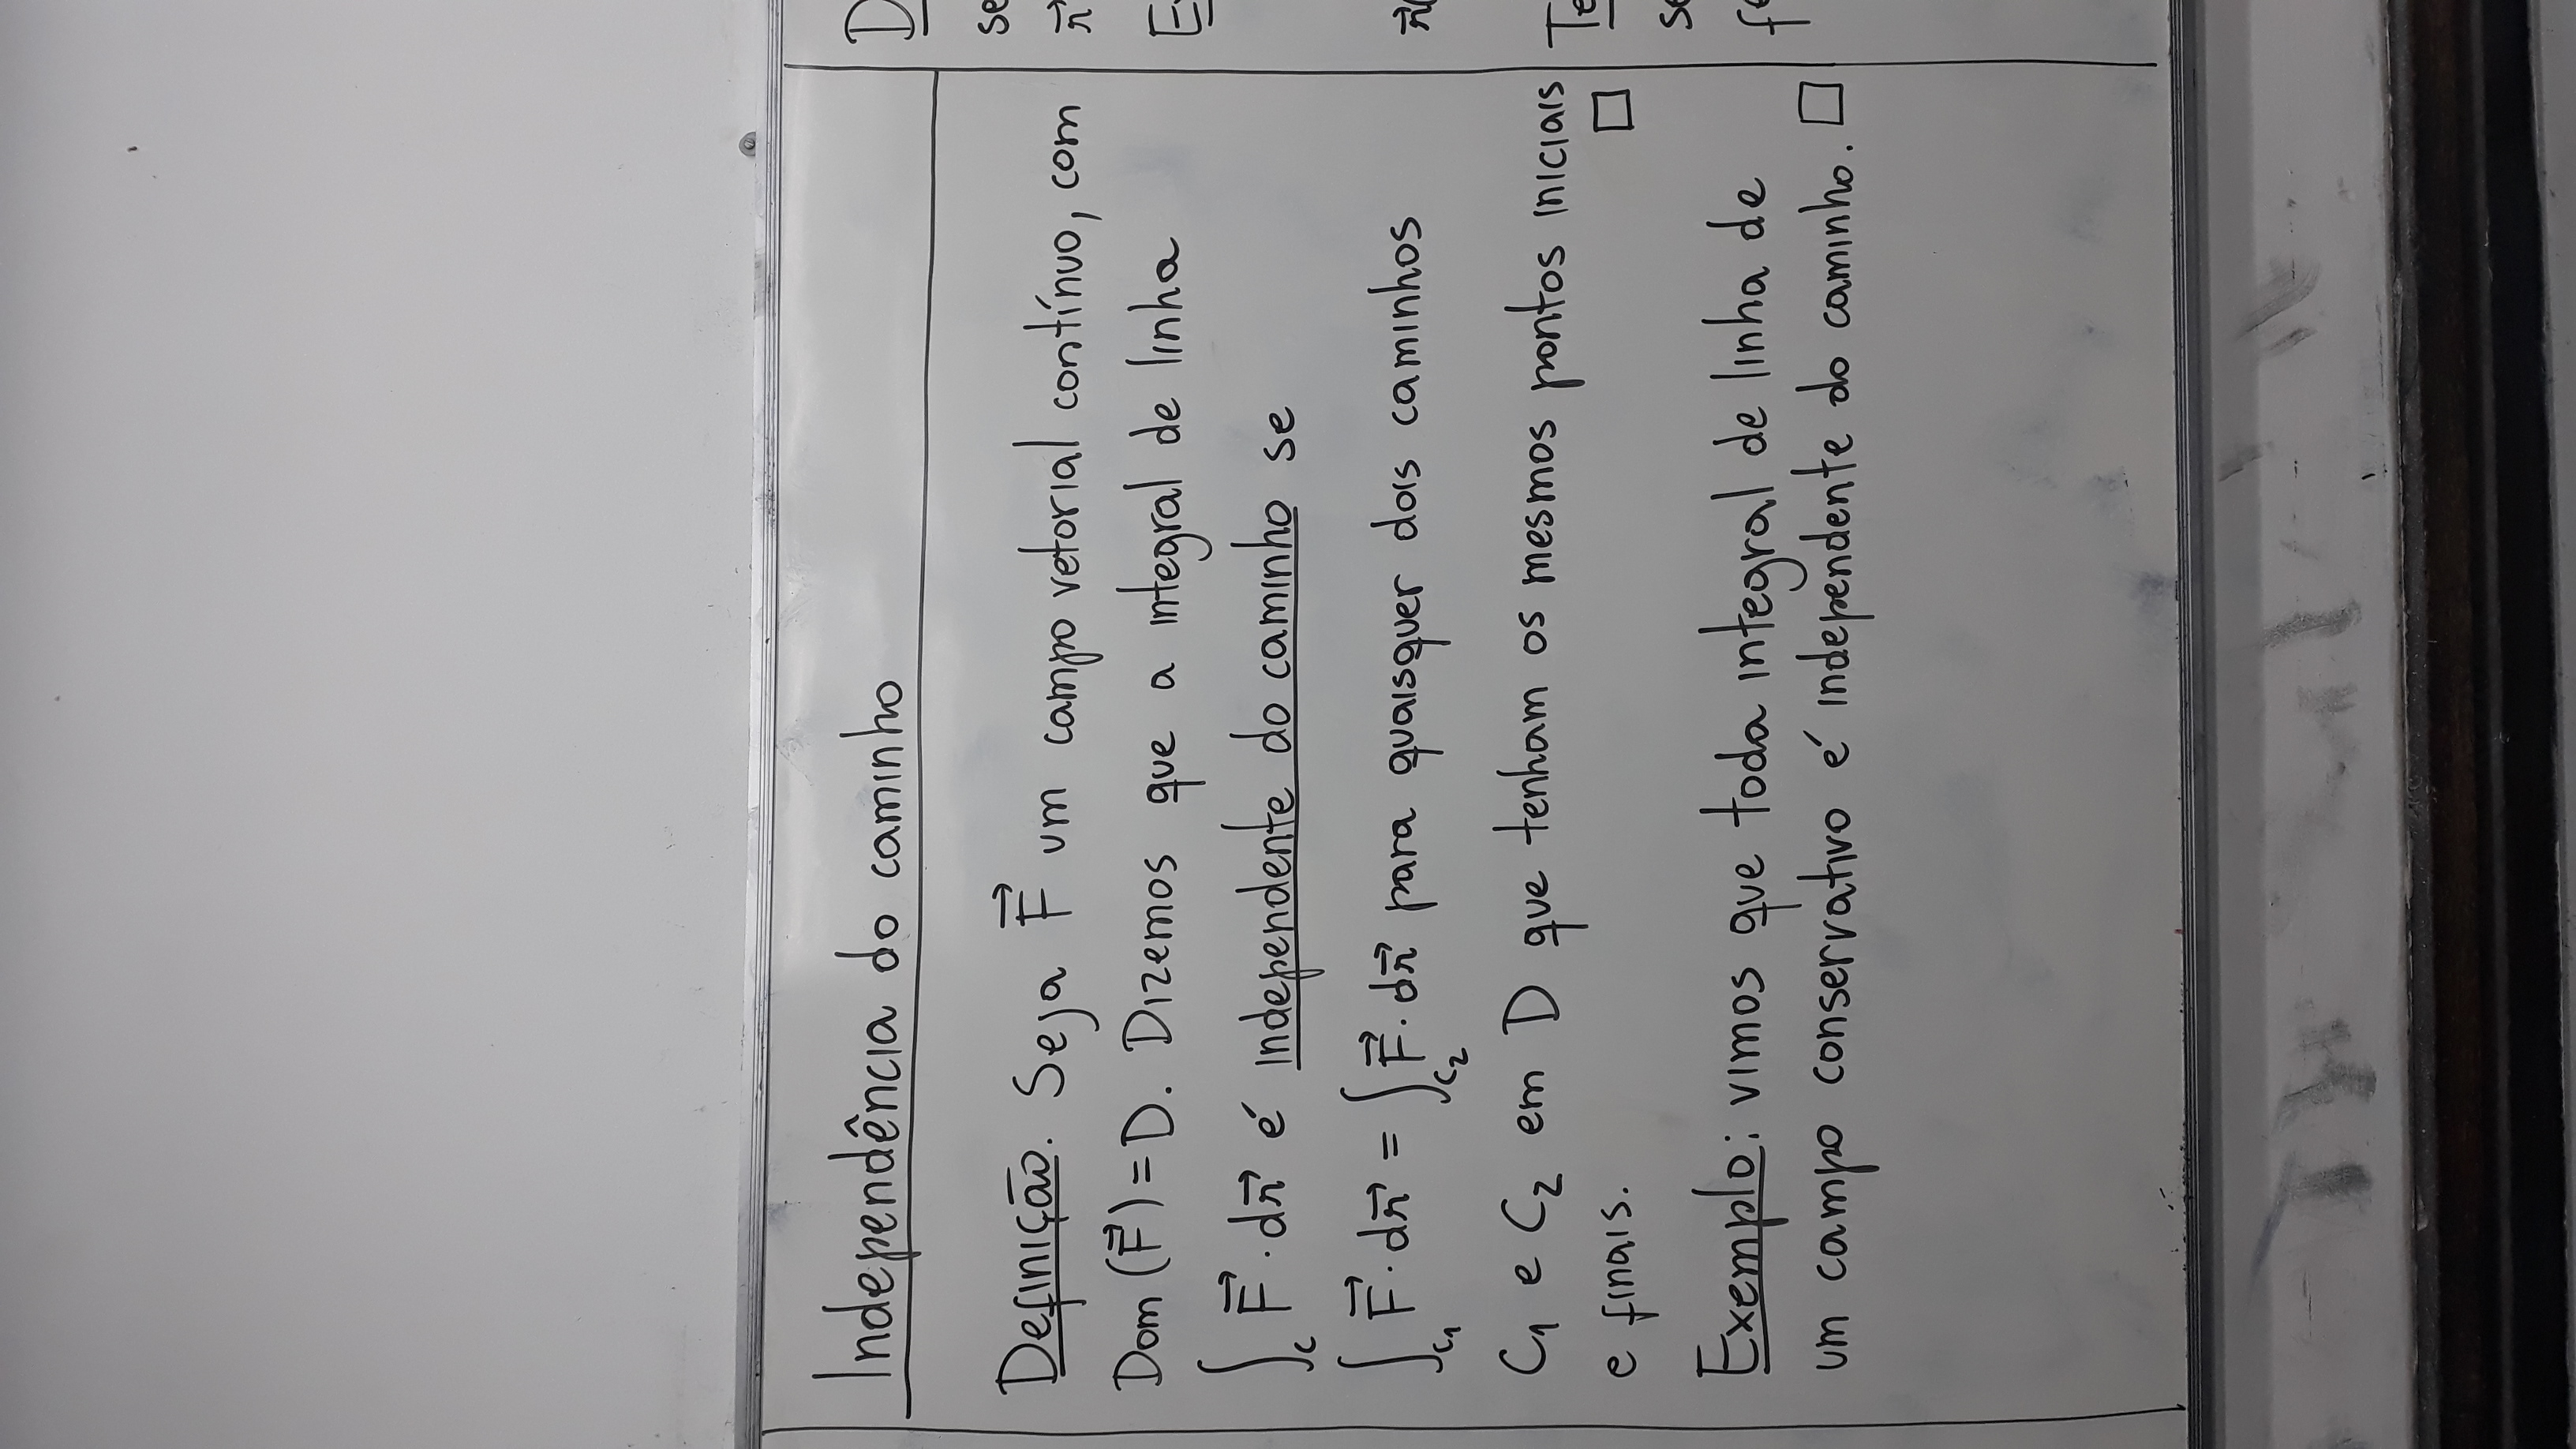 Independência do caminho
Definição. Seja F⃗ um campo vetorial contínuo, com
Dom (F⃗) = D. Dizemos que a integral de linha
∫_C F⃗ · dr⃗ é independente do caminho se
∫_C₁ F⃗ · dr⃗ = ∫_C₂ F⃗ · dr⃗ para quaisquer dois caminhos
C₁ e C₂ em D que tenham os mesmos pontos iniciais
e finais. □
Exemplo: vimos que toda integral de linha de
um campo conservativo é independente do caminho. □
D
se
r⃗